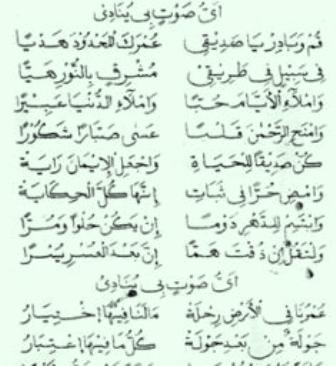 أيُّ صَوْتٍ بِي يُنَادِي
قُمْ وَبَادِرْ يَا صَدِيقِي عُمْرُكَ المَحْدُودُ هَدْيًا
فِي سَبِيلٍ فِي طَرِيقِي مُشْرِقٍ بِالنُّورِ هَيَّا
وَامْلَاءِ الْأَيَّامَ حُبًّا وَامْلَاءِ الدُّنْيَا عَبِيرًا
وَامْنَحِ الرَّحْمٰنَ قَلْبًا عَسَى صَبَّارًا شَكُورًا
كُنْ صَدِيقًا لِلْحَيَاةِ وَاجْعَلِ الْإِيمَانَ رَايَةْ
وَامْضِ حُرًّا فِي ثَبَاتٍ إِنَّهَا كُلُّ الْحِكَايَةْ
وَابْتَسِمْ لِلدَّهْرِ دَوْمًا إِنْ يَكُنْ حُلْوًا وَمُرًّا
وَلْتَقُلْ إِنْ ذُقْتَ هَمًّا إِنَّ بَعْدَ الْعُسْرِ يُسْرًا
أيُّ صَوْتٍ بِي يُنَادِي
عُمْرُنَا فِي الْأَرْضِ رِحْلَةْ مَا لَنَا فِيهَا إِخْتِيَارُ
جَوْلَةٌ مِنْ بَعْدِ جَوْلَةْ كُلُّ مَا فِيهَا إِعْتِبَارُ